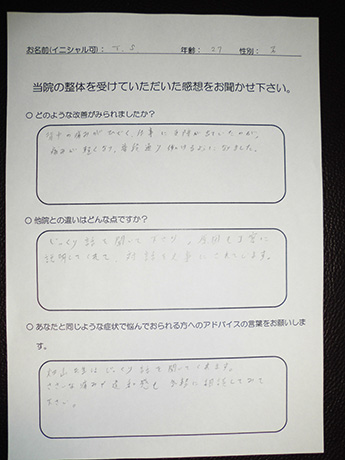 お名前(イニシャル可)： T. S. 年齢： 27 性別：
当院の整体を受けていただいた感想をお聞かせ下さい。
○ どのような改善がみられましたか？
の痛みがひどく、仕事に支障が出ていたのが、
痛みが軽くなり、普段通り働けるようになりました。
○ 他院との違いはどんな点ですか？
じっくり話を聞いて下さり、原因も丁寧に
説明してくれて、対話を大事にしてくれてます。
○ あなたと同じような症状で悩んでおられる方へのアドバイスの言葉をお願いしま
す。
先生はじっくり話を聞いてくれます。
ささいな痛みや違和感も気軽に相談してみて
下さい。